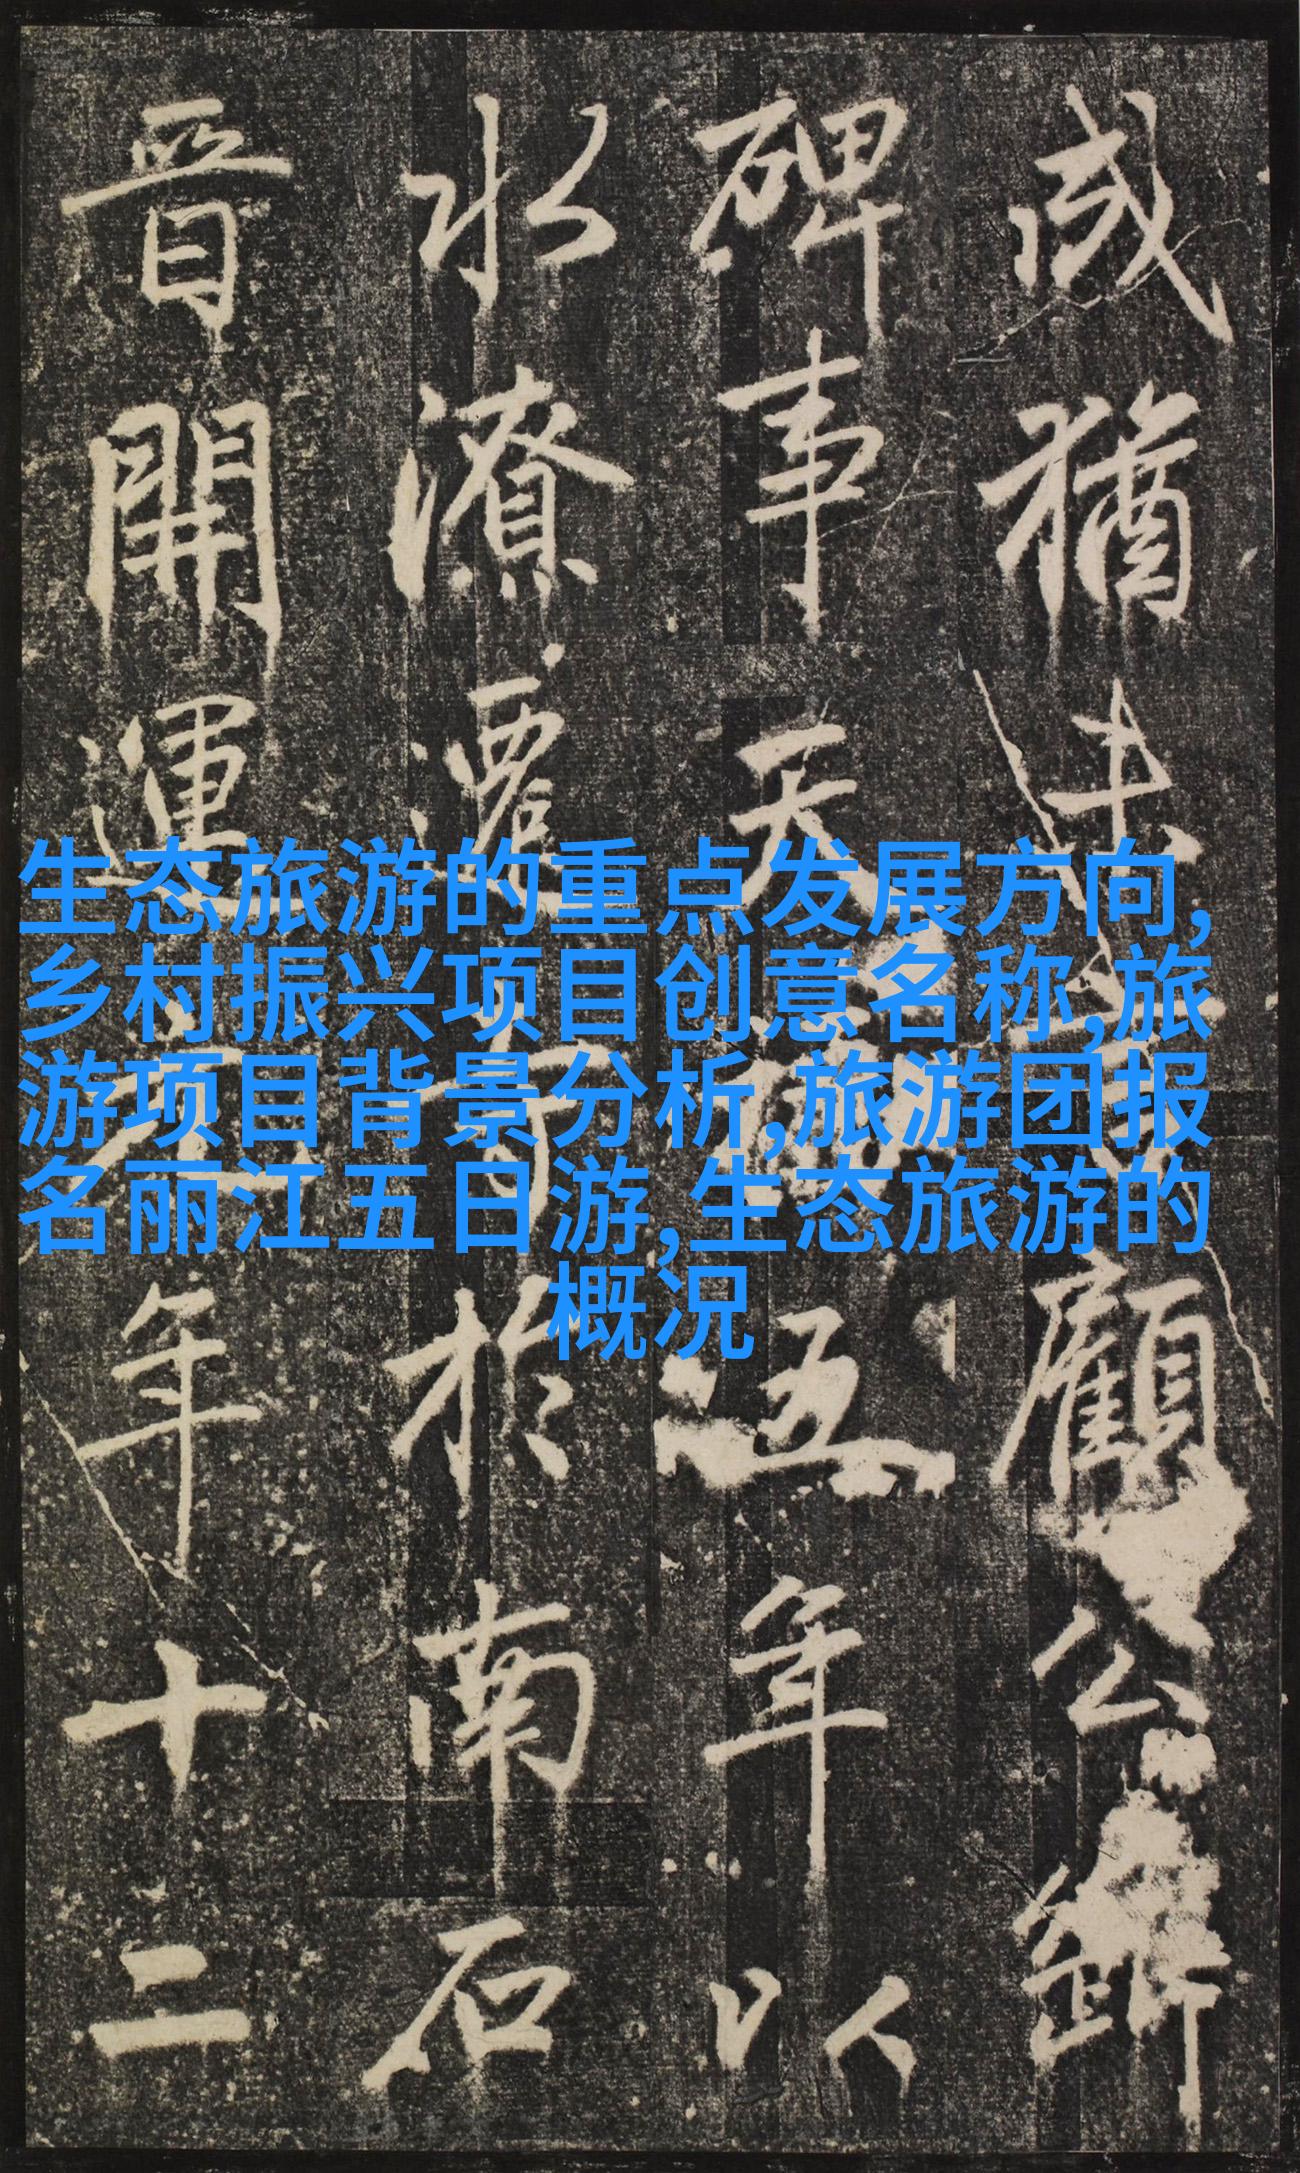 生态旅游的重点发展方向,
乡村振兴项目创意名称,旅
游项目背景分析,旅游团报
名丽江五日游,生态旅游的
概况
猶顧公
碑事天五年以
水潦遷於南石
晉開運年十二